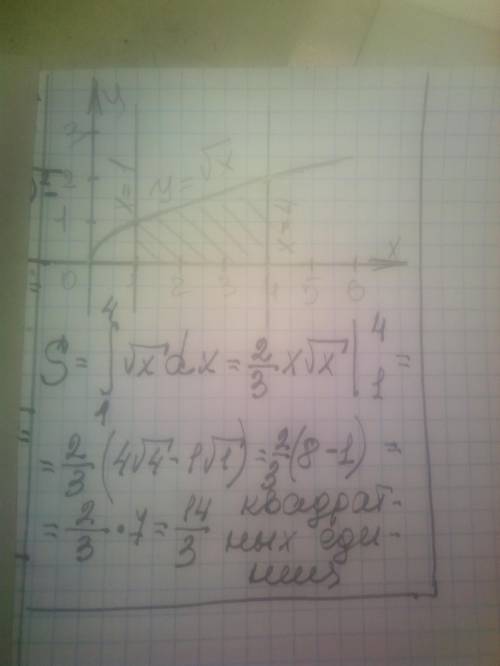 y
3
2
1
x=1
y=√x
x=4
x
0 1 2 3 4 5 6
S = ∫₁⁴ √x dx = 2/3 x√x |₁⁴ =
= 2/3 (4√4 - 1√1) = 2/3 (8 - 1) =
= 2/3 · 7 = 14/3 квадрат-
ных еди-
ниц